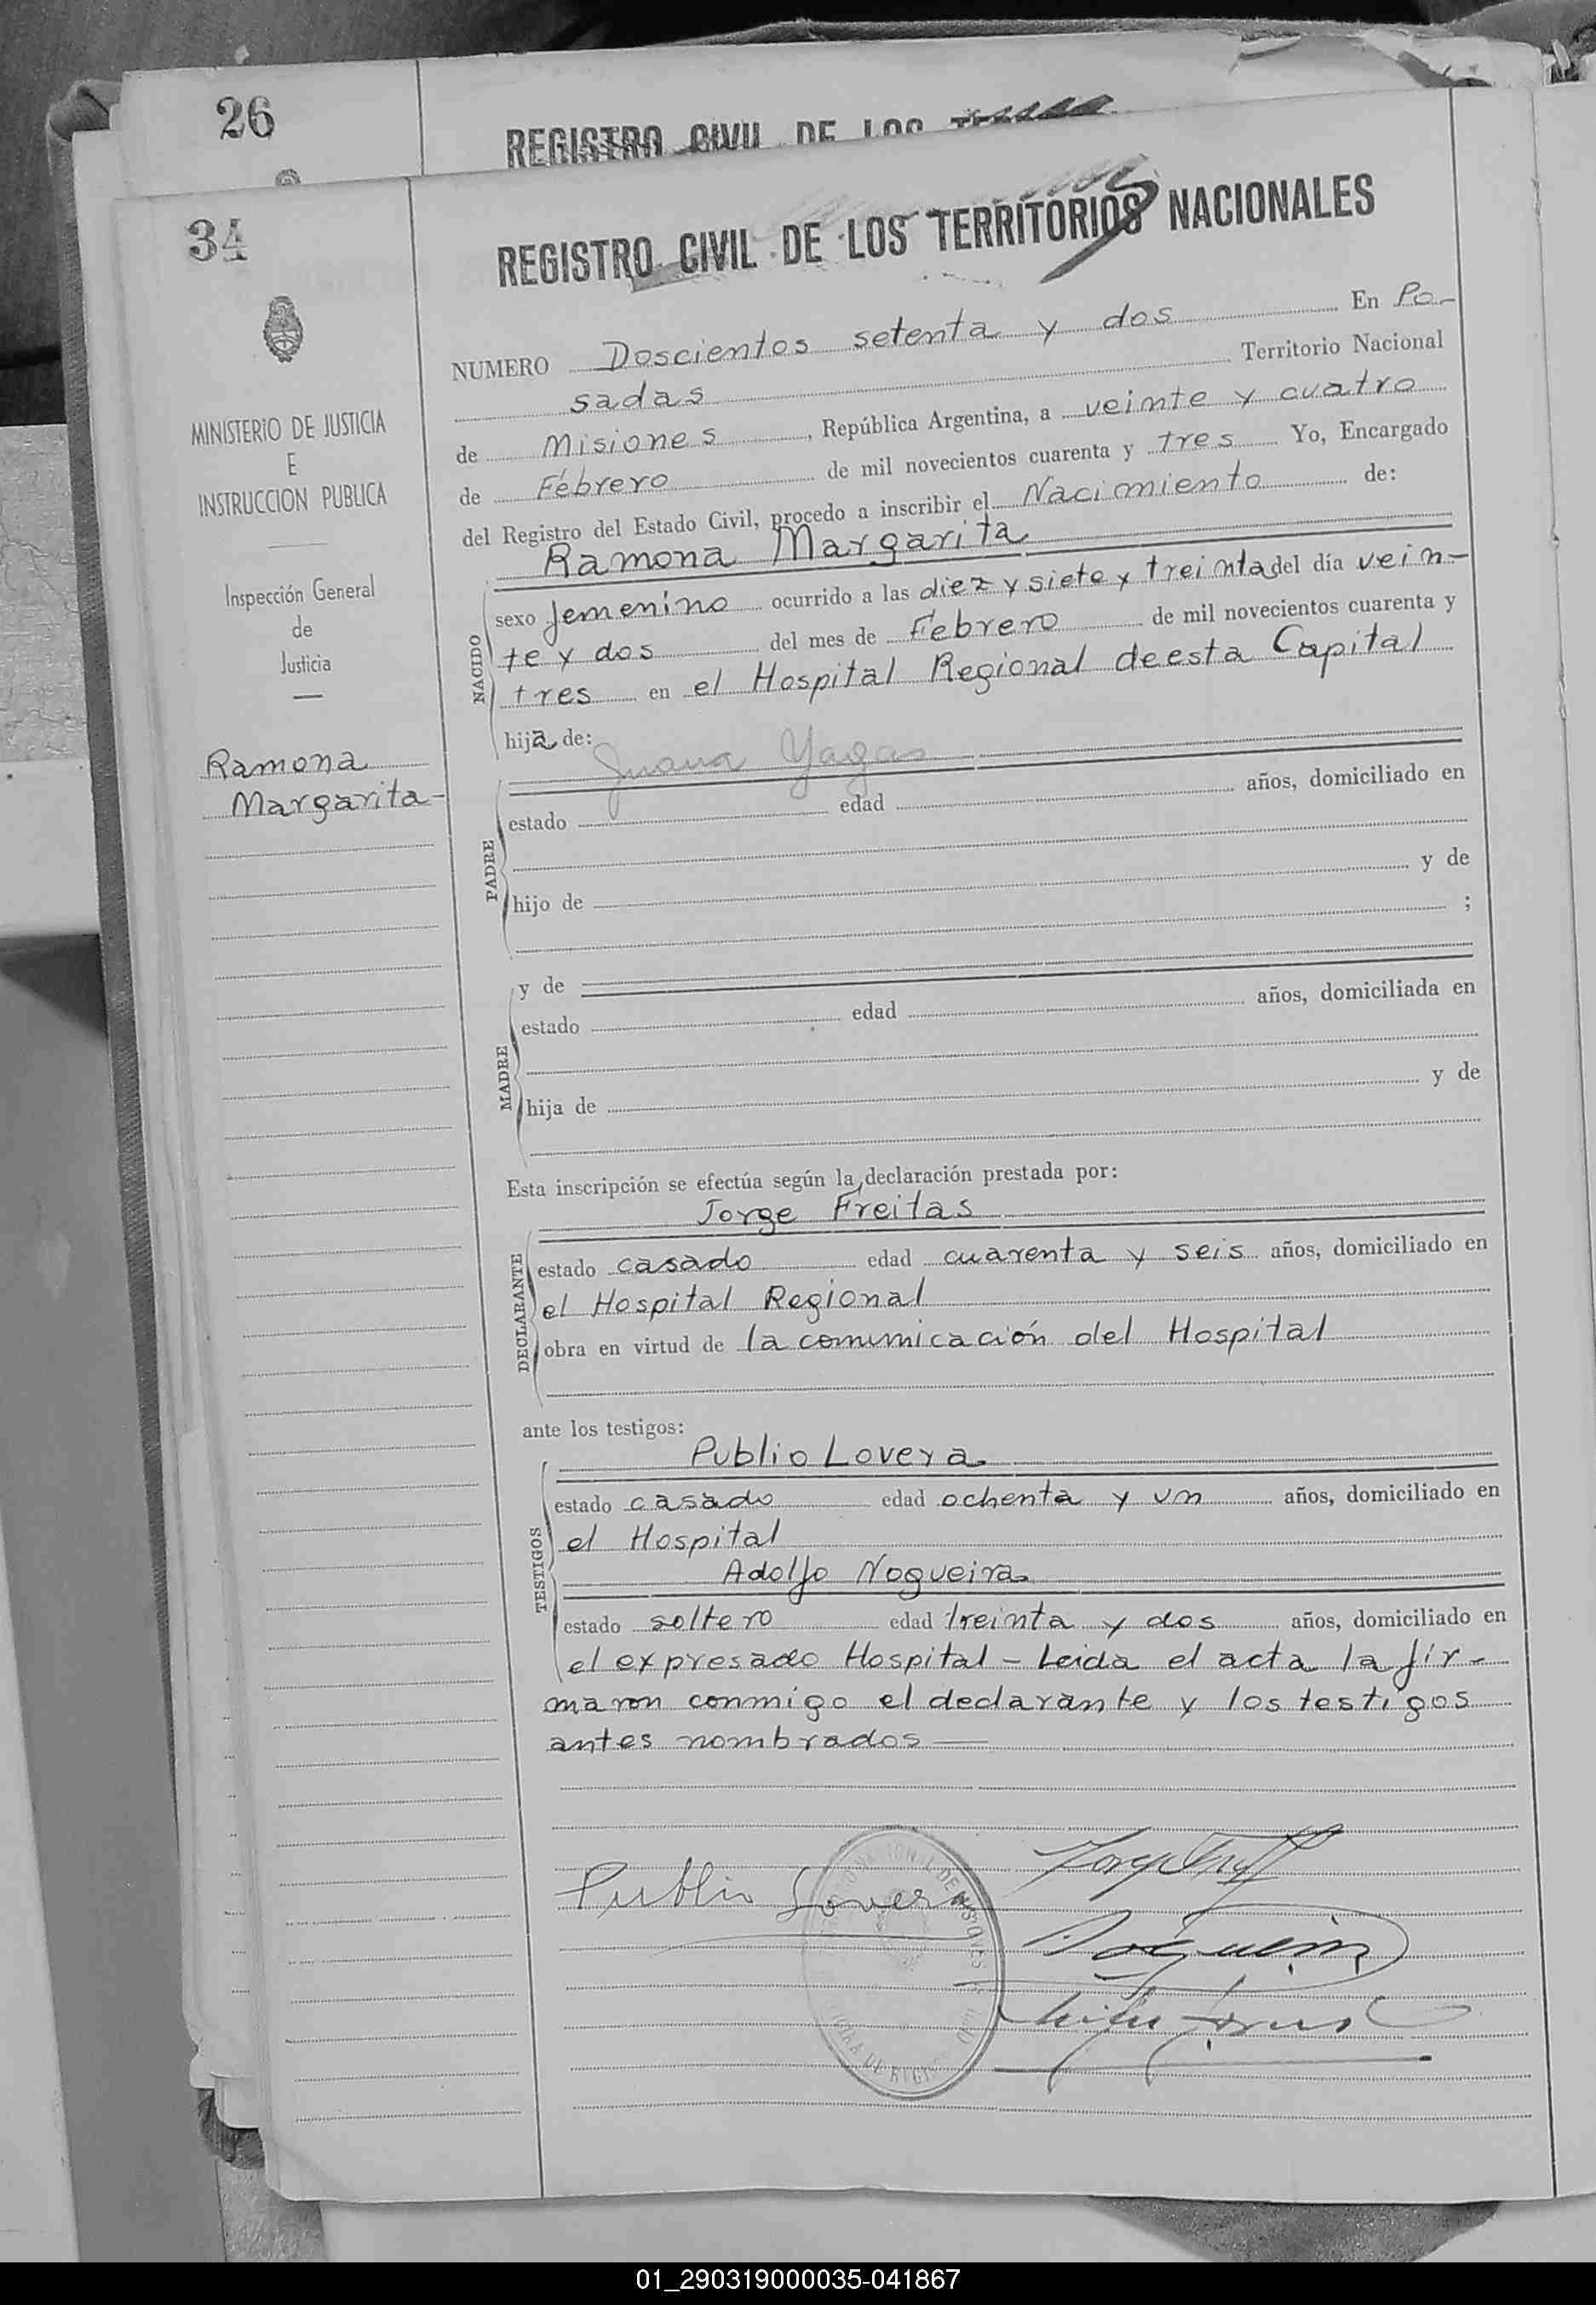 26
REGISTRO CIVIL DE LOS
34
REGISTRO CIVIL DE LOS TERRITORIOS NACIONALES
MINISTERIO DE JUSTICIA
E
INSTRUCCION PUBLICA
Inspección General
de
Justicia
Ramona
Margarita-
NUMERO Doscientos setenta y dos En Po-
sadas Territorio Nacional
de Misiones, República Argentina, a veinte y cuatro
de Febrero de mil novecientos cuarenta y tres Yo, Encargado
del Registro del Estado Civil, procedo a inscribir el Nacimiento de:
Ramona Margarita
NACIDO
sexo femenino ocurrido a las diez y siete y treinta del día vein-
te y dos del mes de Febrero de mil novecientos cuarenta y
tres en el Hospital Regional de esta Capital
hija de:
Juana Yagas
PADRE
estado edad años, domiciliado en
hijo de y de
;
MADRE
y de
estado edad años, domiciliada en
hija de y de
Esta inscripción se efectúa según la declaración prestada por:
Jorge Freitas
DECLARANTE
estado casado edad cuarenta y seis años, domiciliado en
el Hospital Regional
obra en virtud de la comunicación del Hospital
ante los testigos:
Publio Lovera
TESTIGOS
estado casado edad ochenta y un años, domiciliado en
el Hospital
Adolfo Nogueira
estado soltero edad treinta y dos años, domiciliado en
el expresado Hospital - Leida el acta la fir-
maron conmigo el declarante y los testigos
antes nombrados —
Publio Lovera
Nogueira
01_290319000035-041867